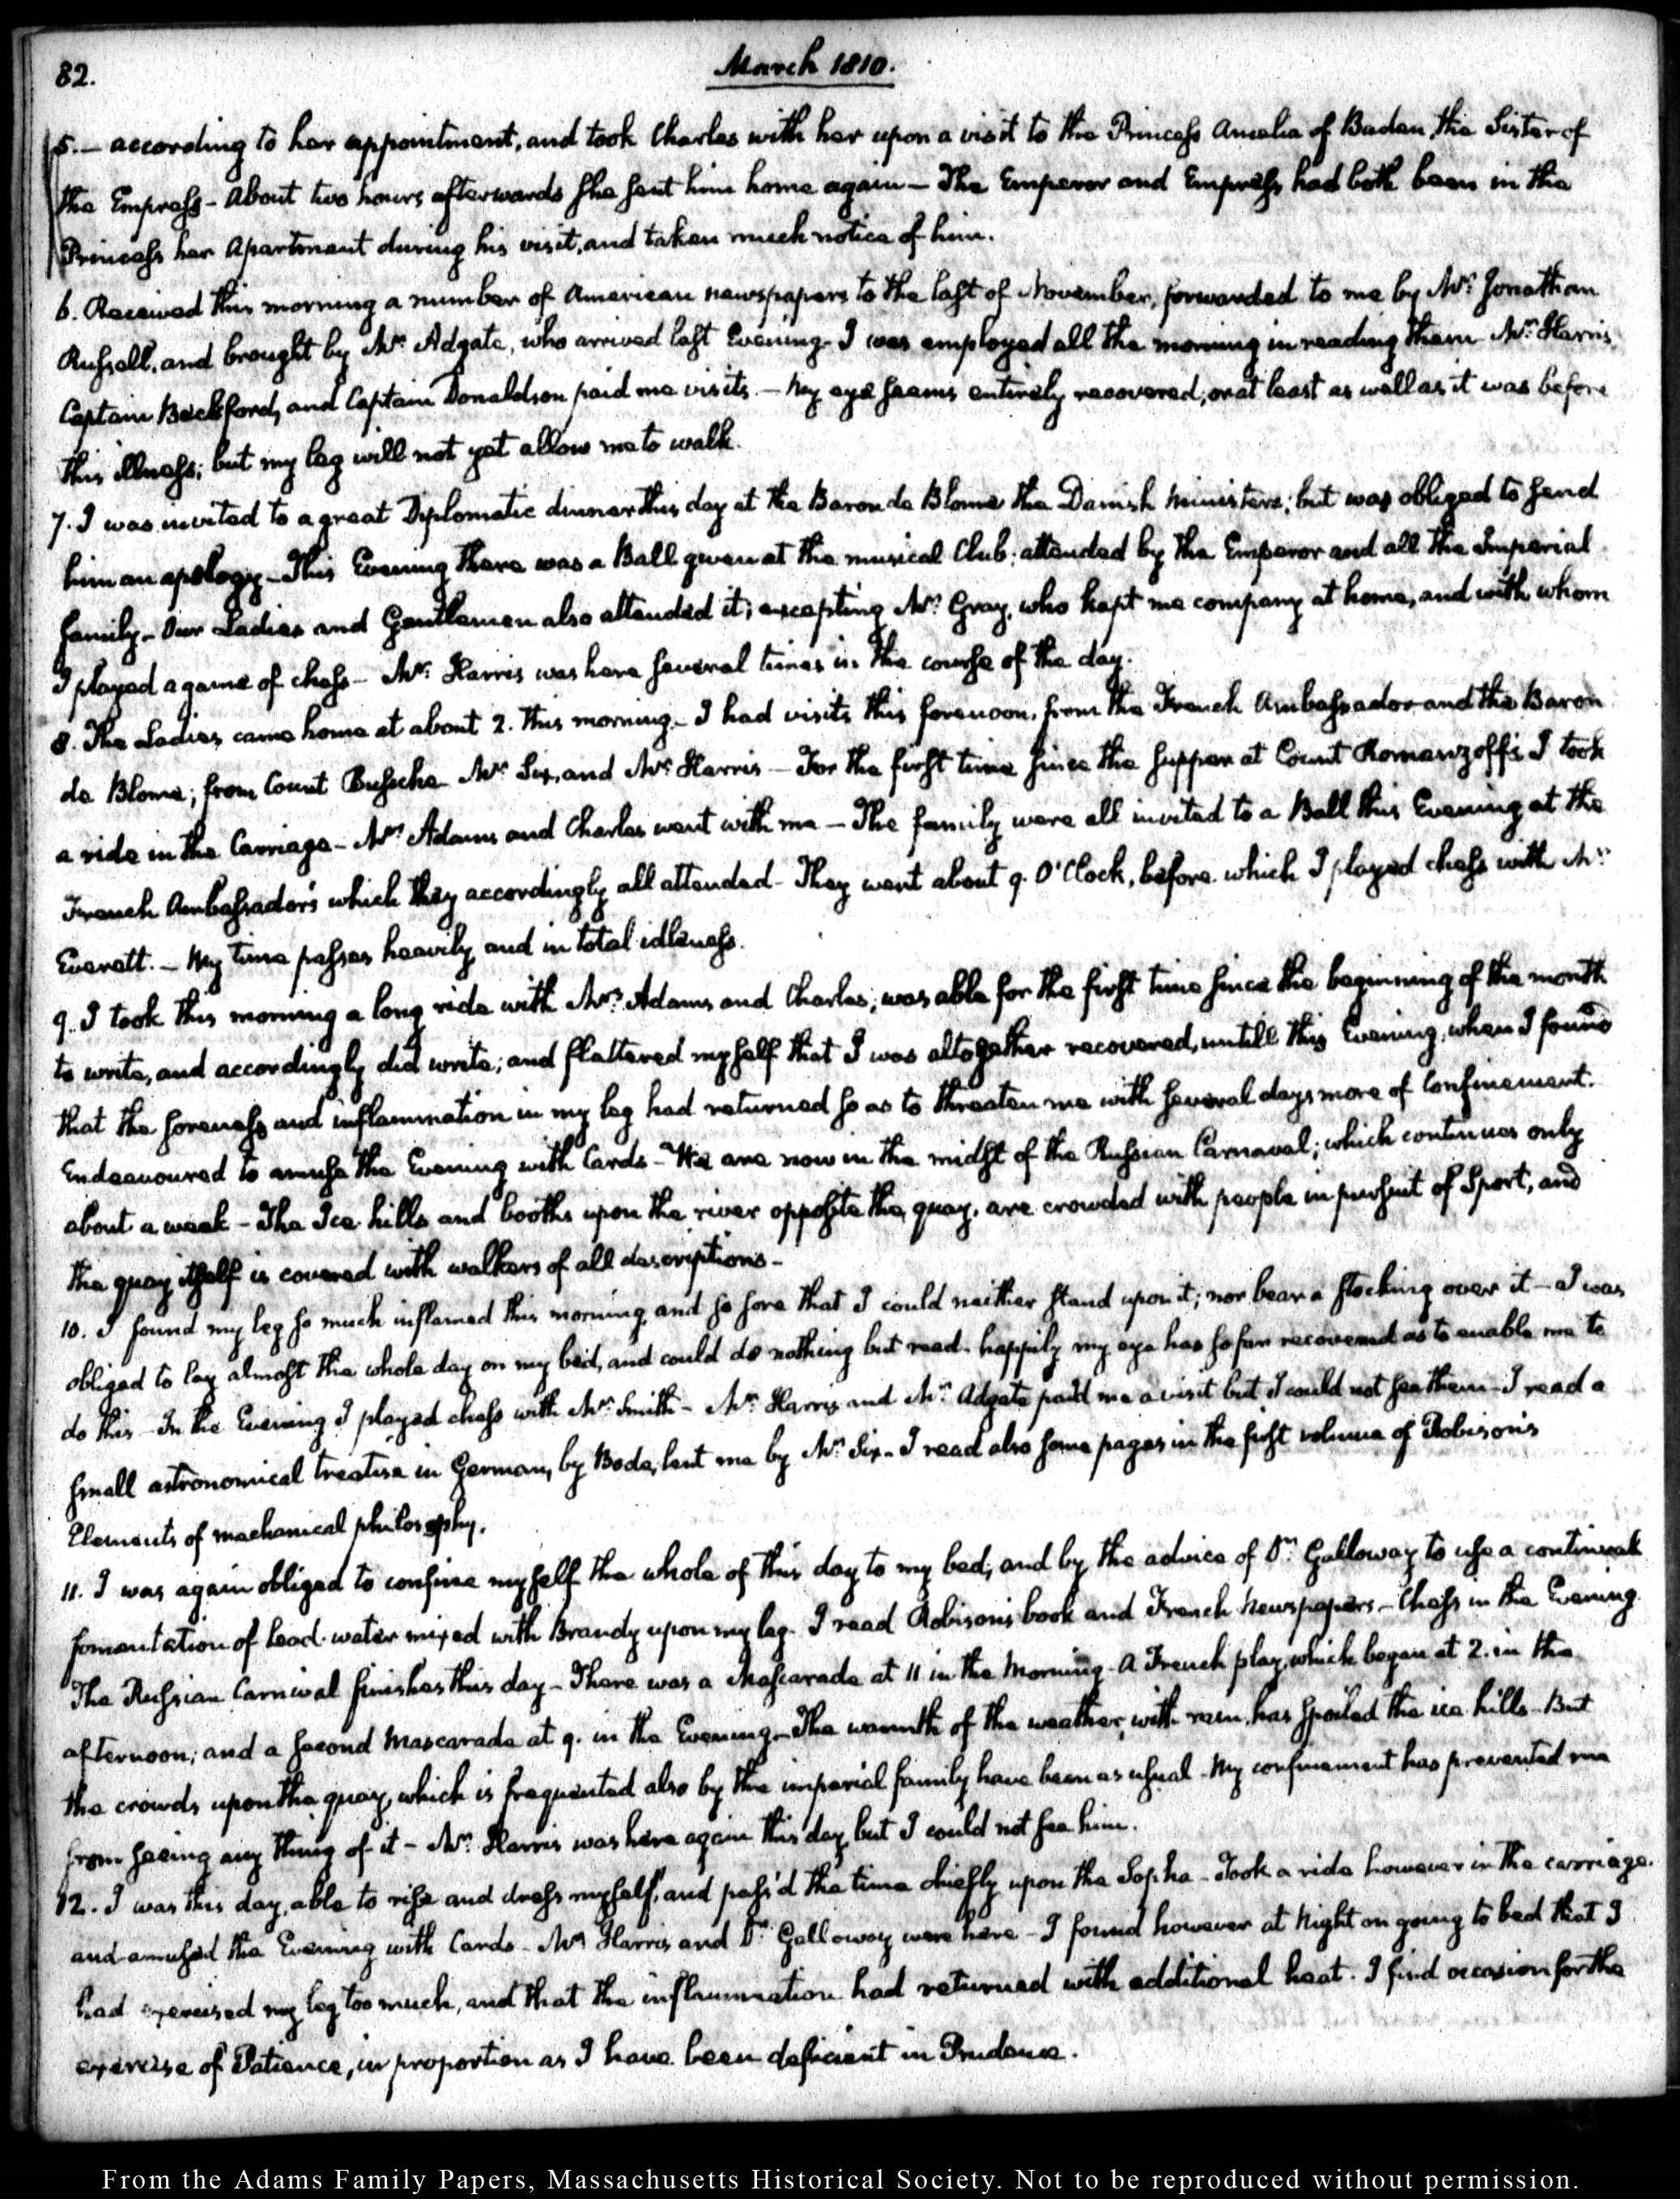 82.
March 1810.
5.— according to her appointment, and took Charles with her upon a visit to the Princess Amelia of Baden, the Sister of
the Empress - About two hours afterwards she sent him home again — The Emperor and Empress had both been in the
Princess her Apartment during his visit, and taken much notice of him.
6. Received this morning a number of American newspapers to the last of November, forwarded to me by Mr. Jonathan
Russell, and brought by Mr. Adgate, who arrived last Evening - I was employed all the morning in reading them Mr. Harris,
Captain Beckford, and Captain Donaldson paid me visits. — My eye seems entirely recovered, or at least as well as it was before
this illness; but my leg will not yet allow me to walk.
7. I was invited to a great Diplomatic dinner this day at the Baron de Blome the Danish Ministers; but was obliged to send
him an apology - This Evening there was a Ball given at the musical Club; attended by the Emperor and all the Imperial
family - Our Ladies and Gentlemen also attended it; excepting Mr. Gray, who kept me company at home, and with whom
I played a game of chess - Mr. Harris was here several times in the course of the day.
8. The Ladies came home at about 2. this morning - I had visits this forenoon, from the French Ambassador and the Baron
de Blome; from Count Bussche Mr. Six, and Mr. Harris — For the first time since the supper at Count Romanzoff's I took
a ride in the Carriage - Mrs. Adams and Charles went with me — The family were all invited to a Ball this Evening at the
French Ambassador's which they accordingly all attended - They went about 9. O'Clock, before which I played chess with Mr.
Everett. — My time passes heavily and in total idleness.
9. I took this morning a long ride with Mrs. Adams and Charles; was able for the first time since the beginning of the month
to write, and accordingly did write; and flattered myself that I was altogether recovered, untill this Evening, when I found
that the soreness and inflammation in my leg had returned so as to threaten me with several days more of Confinement.
Endeavoured to amuse the Evening with Cards - We are now in the midst of the Russian Carnaval; which continues only
about a week - The Ice hills and booths upon the river opposite the quay, are crowded with people in pursuit of Sport, and
the quay itself is covered with walkers of all descriptions -
10. I found my leg so much inflamed this morning, and so sore that I could neither stand upon it; nor bear a stocking over it — I was
obliged to lay almost the whole day on my bed, and could do nothing but read. happily my eye has so far recovered as to enable me to
do this - In the Evening I played chess with Mr. Smith - Mr. Harris and Mr. Adgate paid me a visit but I could not see them - I read a
small astronomical treatise in German, by Bode, lent me by Mr. Six - I read also some pages in the first volume of Robison's
Elements of mechanical philosophy.
11. I was again obliged to confine myself the whole of this day to my bed, and by the advice of Dr. Galloway to use a continual
fomentation of lead-water mixed with Brandy upon my leg. I read Robison's book and French Newspapers - Chess in the Evening.
The Russian Carnival finishes this day - There was a Mascarade at 11 in the Morning - A French play, which began at 2. in the
afternoon; and a second Mascarade at 9. in the Evening - The warmth of the weather, with rain, has spoiled the ice hills - But
the crowds upon the quay, which is frequented also by the imperial family have been as usual - My confinement has prevented me
from seeing any thing of it - Mr. Harris was here again this day, but I could not see him.
12. I was this day, able to rise and dress myself, and pass'd the time chiefly upon the Sopha - Took a ride however in the carriage.
and amused the Evening with Cards - Mr. Harris and Dr. Galloway were here - I found however at Night on going to bed that I
had exercised my leg too much, and that the inflammation had returned with additional heat. I find occasion for the
exercise of Patience, in proportion as I have been deficient in Prudence.
From the Adams Family Papers, Massachusetts Historical Society. Not to be reproduced without permission.